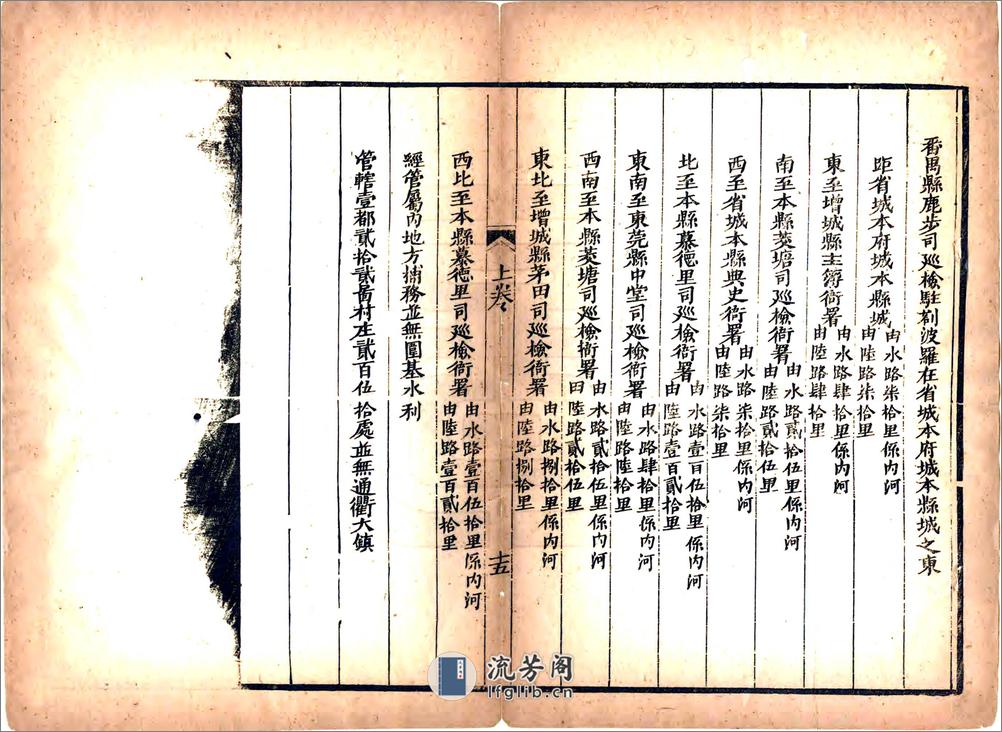 番禺縣鹿步司巡檢駐劄波羅在省城本府城本縣城之東
距省城本府城本縣城
由水路柒拾里係內河
由陸路柒拾里
東至增城縣主簿衙署
由水路肆拾里係內河
由陸路肆拾里
南至本縣茭塘司巡檢衙署
由水路貳拾伍里係內河
由陸路貳拾伍里
西至省城本縣典史衙署
由水路柒拾里係內河
由陸路柒拾里
北至本縣慕德里司巡檢衙署
由水路壹百伍拾里係內河
由陸路壹百貳拾里
東南至東莞縣中堂司巡檢衙署
由水路肆拾里係內河
由陸路陸拾里
西南至本縣茭塘司巡檢衙署
由水路貳拾伍里係內河
田陸路貳拾伍里
上卷
十五
東北至增城縣茅田司巡檢衙署
由水路捌拾里係內河
由陸路捌拾里
西北至本縣慕德里司巡檢衙署
由水路壹百伍拾里係內河
由陸路壹百貳拾里
經管屬內地方捕務並無圍基水利
管轄壹都貳拾貳啚村庄貳百伍拾處並無通衢大鎮
流芳阁
lfglib.cn